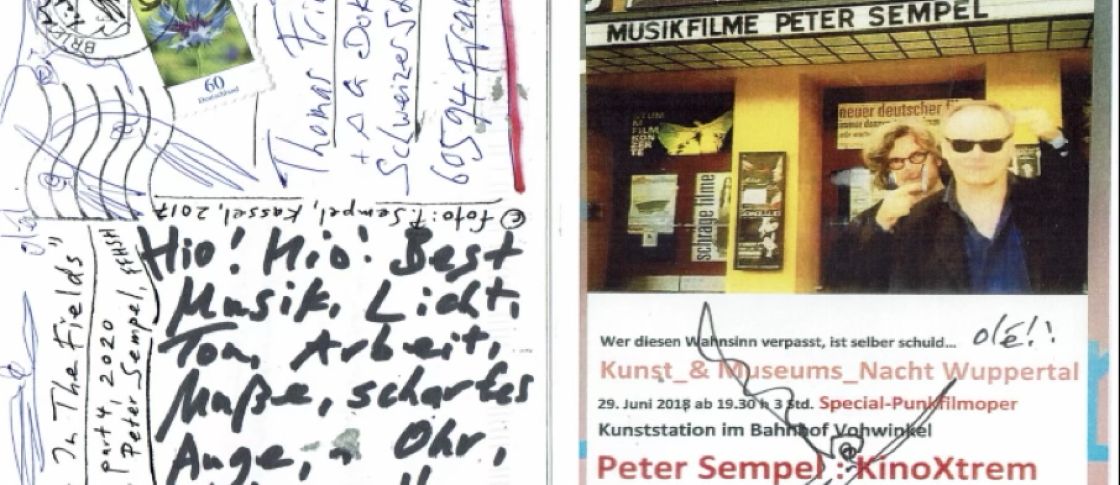 BRI
60
Deutschland
Thomas
+ AG DOK
Schweizer
60594 Fran
© Foto: P. Sempel, Kassel, 2017
olé
"In The Fields"
part 4, 2020
Peter Sempel, FFHSH
Hio! Hio! Best
Musik, Licht,
Ton, Arbeit,
Muße, scharfes
Auge, Ohr,
MUSIKFILME PETER SEMPEL
neuer deutscher
STUM
M
FILM
KON
ZER
TE
schräge filme
Wer diesen Wahnsinn verpasst, ist selber schuld...
olé!!
Kunst_& Museums_Nacht Wuppertal
29. Juni 2018 ab 19.30 h 3 Std. Special-Punkfilmoper
Kunststation im Bahnhof Vohwinkel
Peter Sempel : KinoXtrem